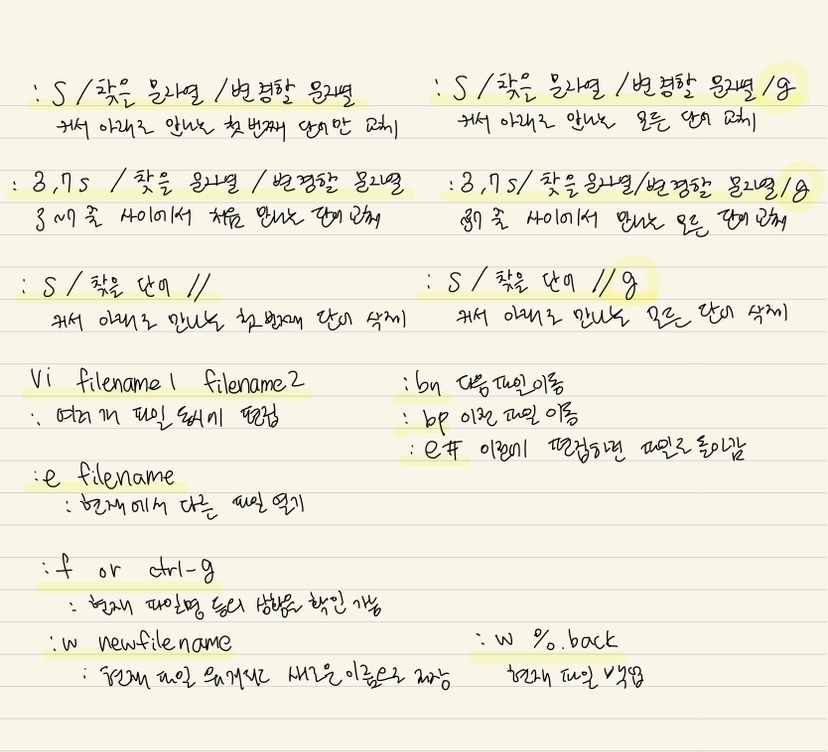 : S / 찾을 문자열 / 변경할 문자열
커서 아래로 만나는 첫번째 단어만 교체
: S / 찾을 문자열 / 변경할 문자열 / g
커서 아래로 만나는 모든 단어 교체
: 3,7s / 찾을 문자열 / 변경할 문자열
3~7 줄 사이에서 처음 만나는 단어 교체
: 3,7s / 찾을 문자열 / 변경할 문자열 / g
줄 사이에서 만나는 모든 단어 교체
: S / 찾을 단어 //
커서 아래로 만나는 첫번째 단어 삭제
: S / 찾을 단어 // g
커서 아래로 만나는 모든 단어 삭제
Vi filename1 filename2
: 여러개 파일 동시에 편집
: bn 다음파일이동
: bp 이전 파일 이동
: e# 이전에 편집하던 파일로 돌아감
: e filename
: 현재에서 다른 파일 열기
: f or ctrl-g
: 현재 파일명 등의 상황을 확인 가능
: w newfilename
: 현재 파일 새로운 이름으로 저장
: w %.back
현재 파일 백업